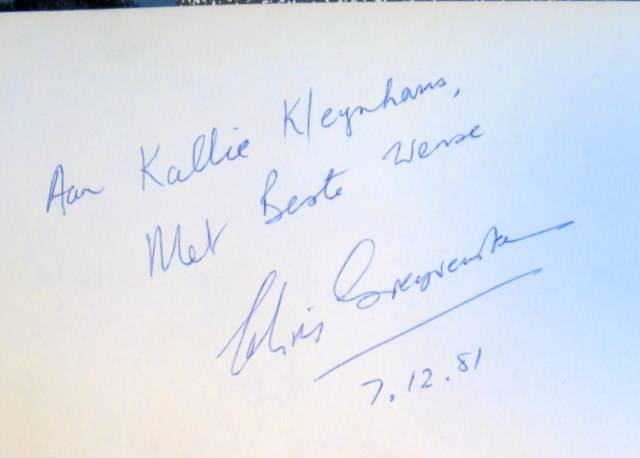 Aan Kallie Kleynhans,
Met Beste wense
Chris Greyvenstein
7.12.81